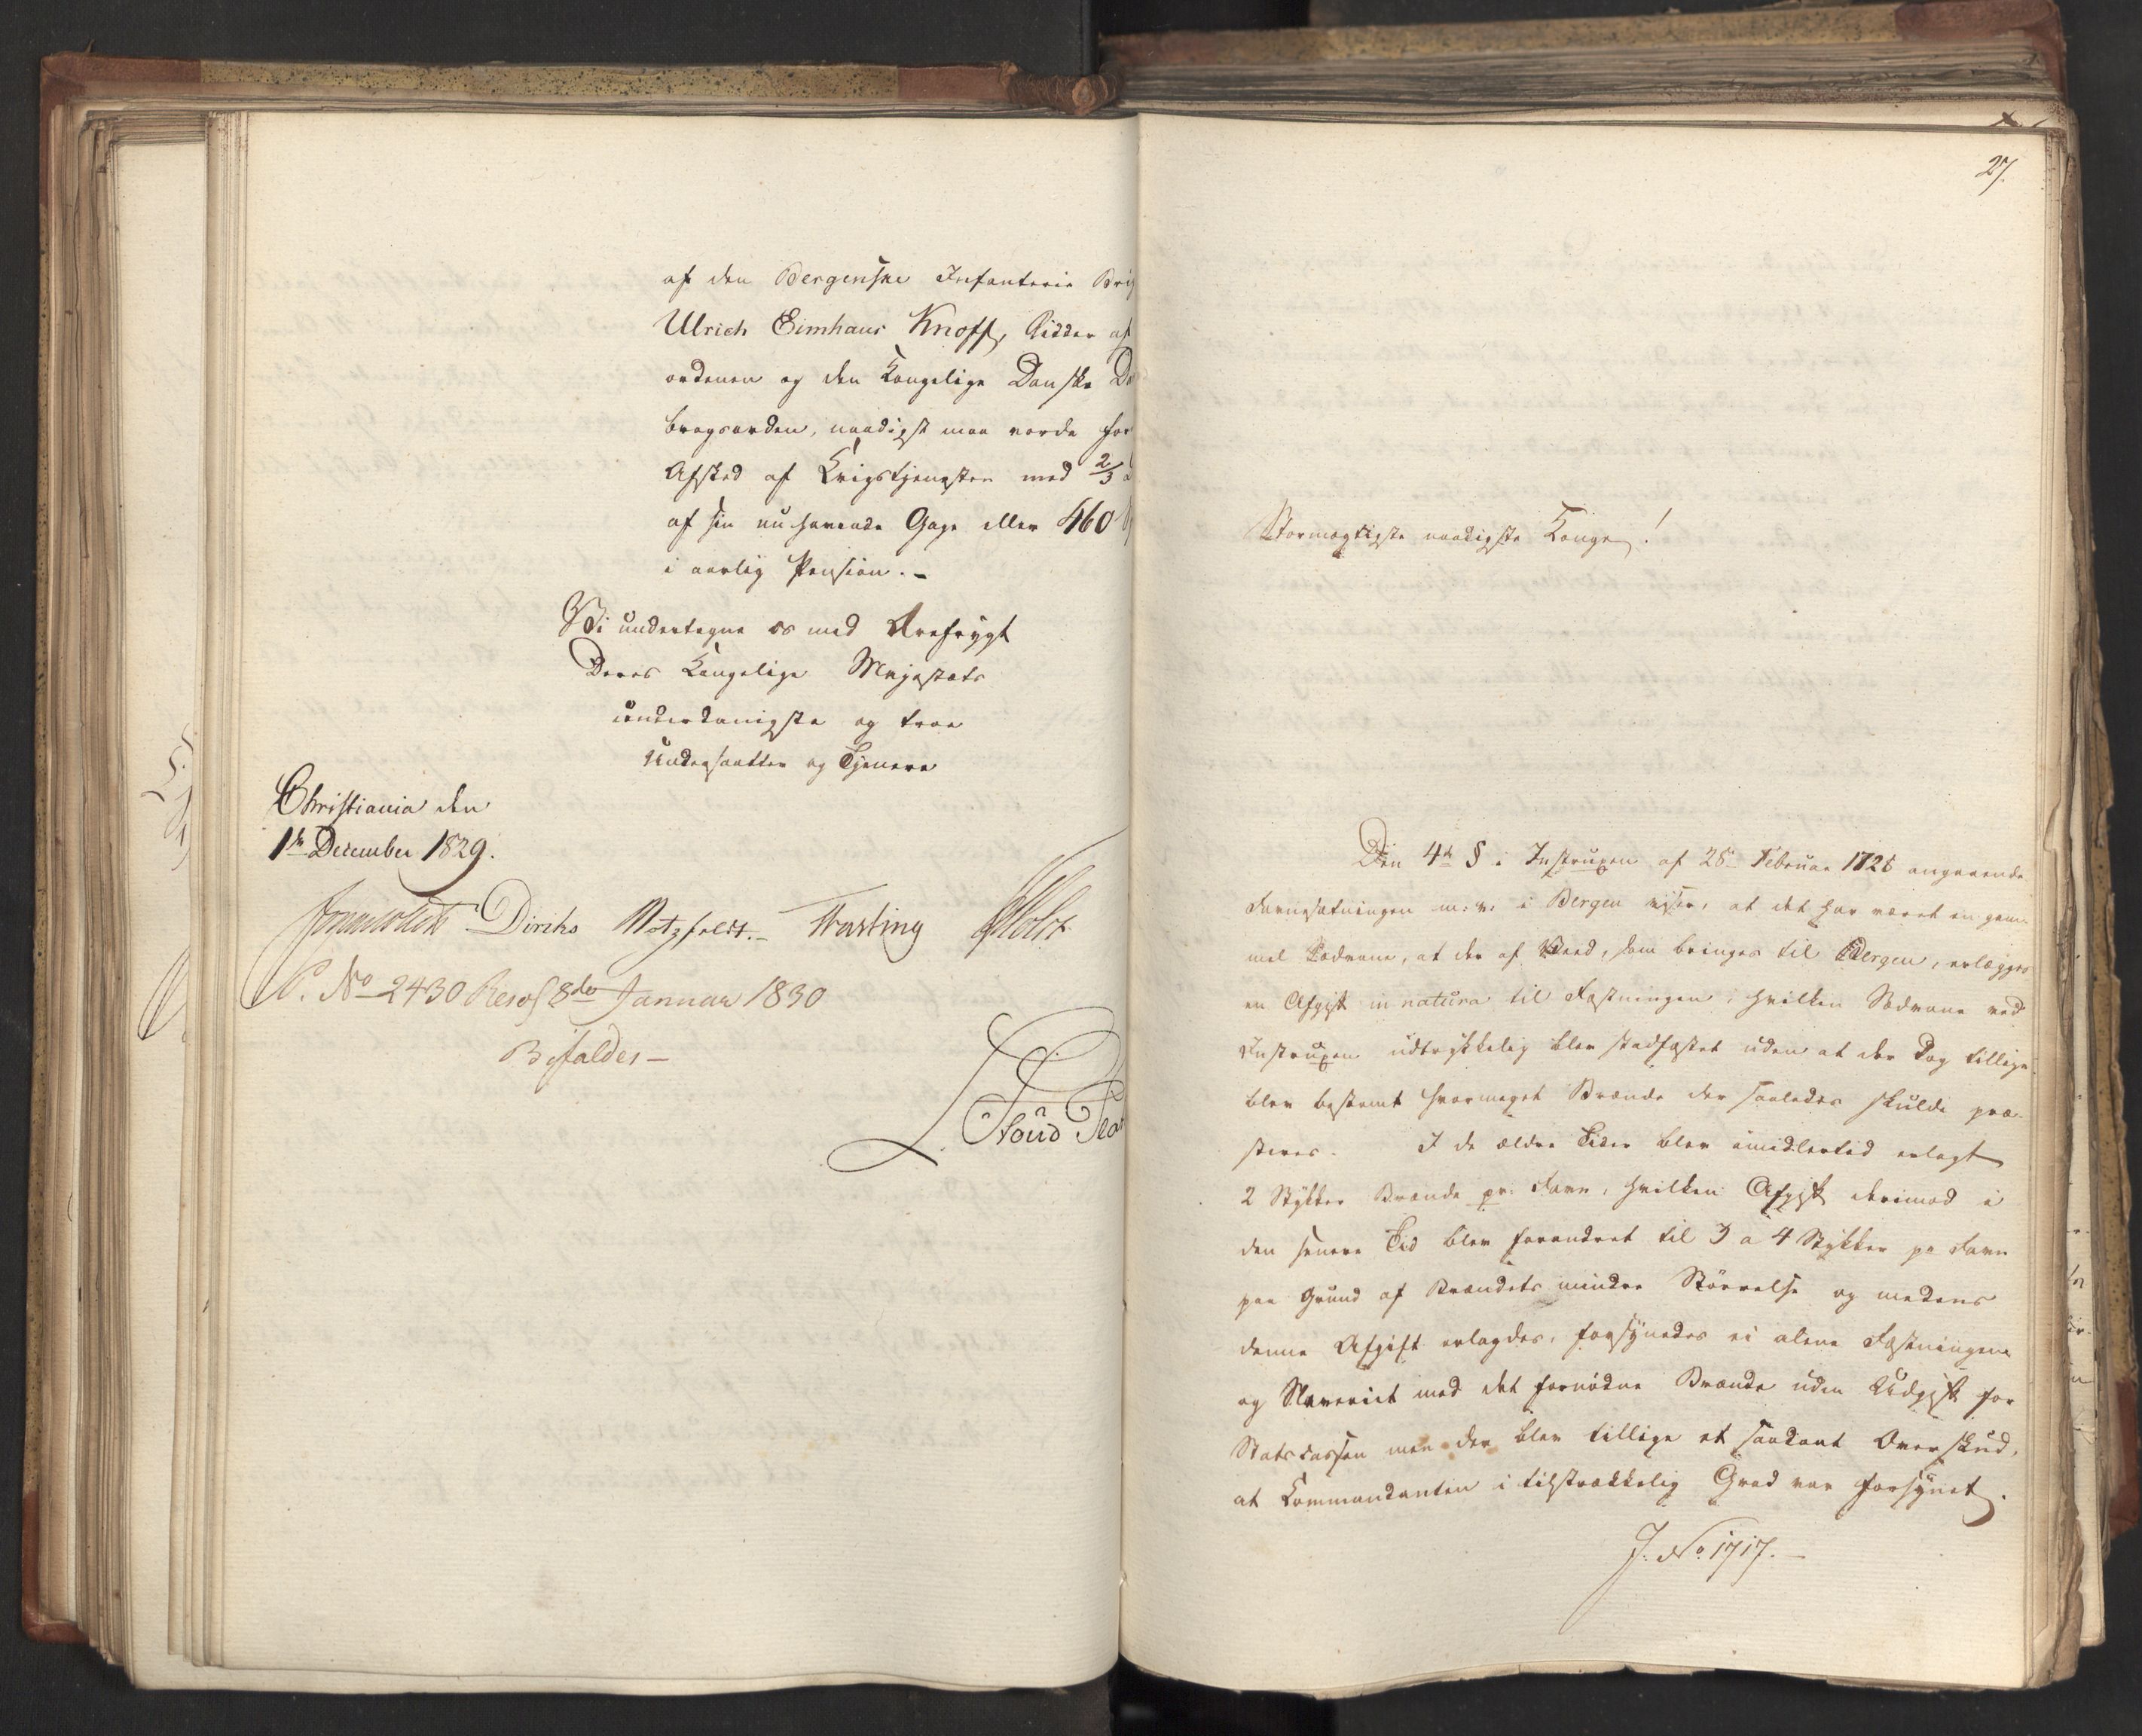 af den Bergenske Infanterie Brig
Ulrich Eimhaus Knoff, Ridder af
ordenen og den Kongelige Danske
brogsorden, naadigst maa vorde for
Afsked af Krigstjenesten med 2/3
af sin nu havende Gage eller 460
i aarlig Pension. –
Vi undertegne os med Ærefrygt
Deres Kongelige Majestæts
underdanigste og troe
Undersaatter og Tjenere
Christiania den
1te December 1829.
Diriks Motzfeldt. – Fasting Holst
P. No 2430 Resol 8de Januar 1830
Bifaldes –
27.
Stormægtigste naadigste Konge!
Den 4de § i Instruxen af 28de Februar 1728 angaaende
Favnsætningen m: v: i Bergen viser, at det har været en gam-
mel Sædvane, at der af Veed, som bringes til Bergen, erlægges
en Afgift in natura til Fæstningen, hvilken Sædvane ved
Instruxen udtrykkelig blev stadfæstet uden at der dog tillige
blev bestemt hvormeget Brænde der saaledes skulde præ-
steres. I de ældre Tider blev imidlertid erlagt
2 Stykker Brænde pr: Favn, hvilken Afgift derimod i
den senere Tid blev forandret til 3 a 4 Stykker pr Favn
paa Grund af Brændets mindre Størrelse og medens
denne Afgift erlagdes, forsynedes ei alene Fæstningen
og Slaveriet med det fornødne Brænde uden Udgift for
Statscassen men der blev tillige et saadant Overskud,
at Commandanten i tilstrækkelig Grad var forsynet.
J. No 1717. –